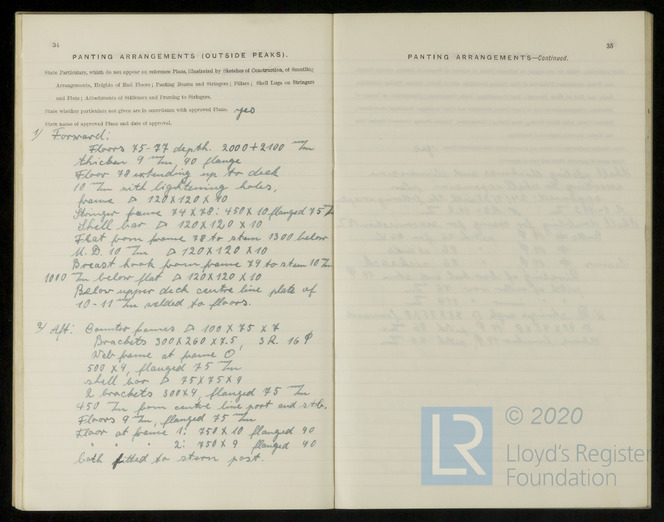 34
PANTING ARRANGEMENTS (OUTSIDE PEAKS).
State Particulars, which do not appear on reference Plans, illustrated by Sketches of Construction, of Scantling
Arrangements, Heights of End Floors; Panting Beams and Stringers; Pillars; Shell Lugs on Stringers
and Flats; Attachments of Stiffeners and Framing to Stringers.
State whether particulars not given are in accordance with approved Plans. yes
State name of approved Plans and date of approval.
1) Forward:
Floors 75-77 depth. 2000 + 2100 m/m
thickn 9 m/m, 90 flange
Floor 78 extending up to deck
10 m/m with lightening holes,
frame 120 x 120 x 10
Stringer frame 74 x 78: 450 x 10 flanged 75 m/m
Shell bar 120 x 120 x 10
Flat from frame 78 to stem 1300 below
U.D. 10 m/m 120 x 120 x 10
Breast hook from frame 79 to stem 10 m/m
1000 m/m below flat 120 x 120 x 10
Below upper deck centre line plate of
10-11 m/m welded to floors.
2) Aft: Counter frames 100 x 75 x 7
Brackets 300 x 260 x 7.5, 3 R. 16 φ
Web frame at frame 0
500 x 9, flanged 75 m/m
shell bar 75 x 75 x 9
2 brackets 300 x 9, flanged 75 m/m
450 m/m from centre line port and stb.
Floors 9 m/m, flanged 75 m/m
Floor at frame 1: 750 x 10 flanged 90
" " " 2: 750 x 9 flanged 90
both fitted to stern post.
35
PANTING ARRANGEMENTS—Continued.
LR
© 2020
Lloyd's Register
Foundation